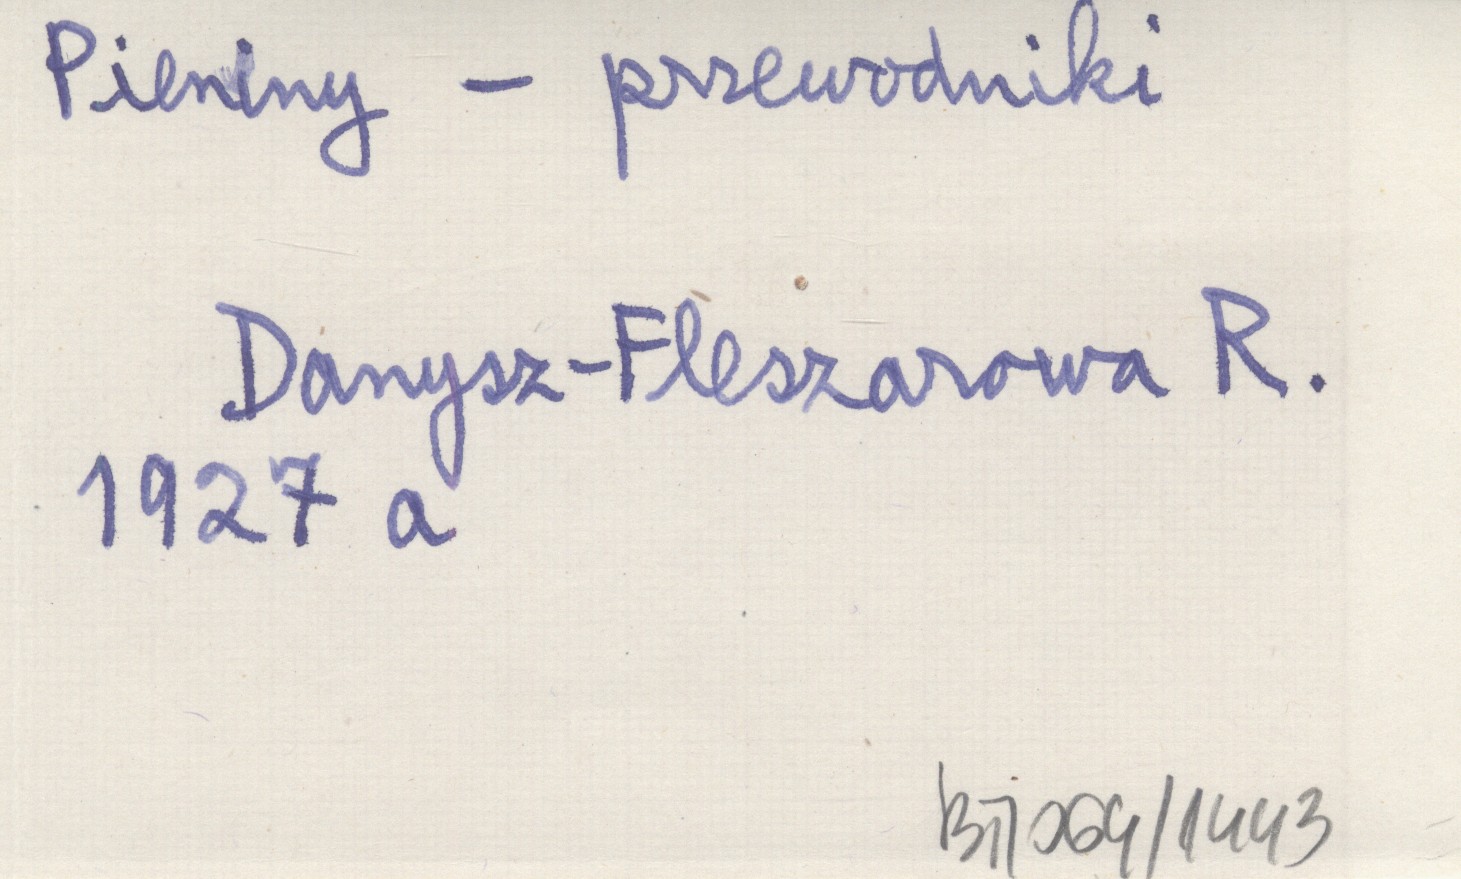 Pieniny - przewodniki
Danysz-Fleszarowa R.
1927 a
/1443